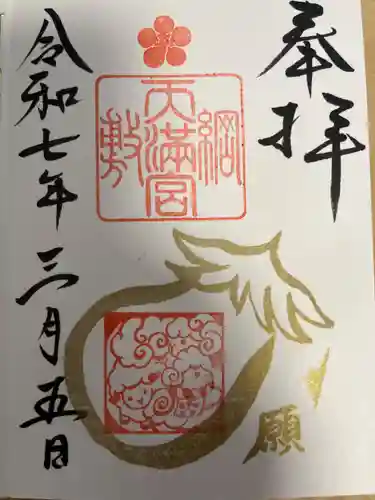 奉拝
綱敷天満宮
願
令和七年三月五日